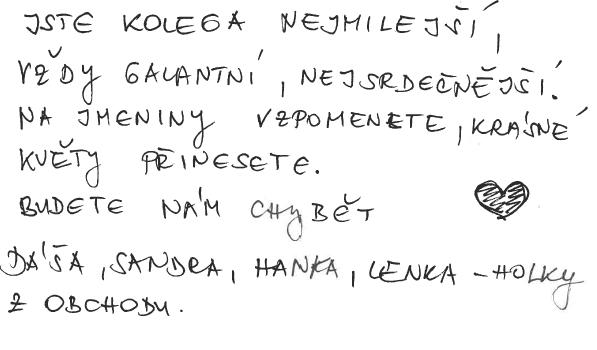 JSTE KOLEGA NEJMILEJŠÍ,
VŽDY GALANTNÍ, NEJSRDEČNĚJŠÍ.
NA JMENINY VZPOMENETE, KRÁSNÉ
KVĚTY PŘINESETE.
BUDETE NÁM CHYBĚT
DÁŠA, SANDRA, HANKA, LENKA – HOLKY
Z OBCHODU.